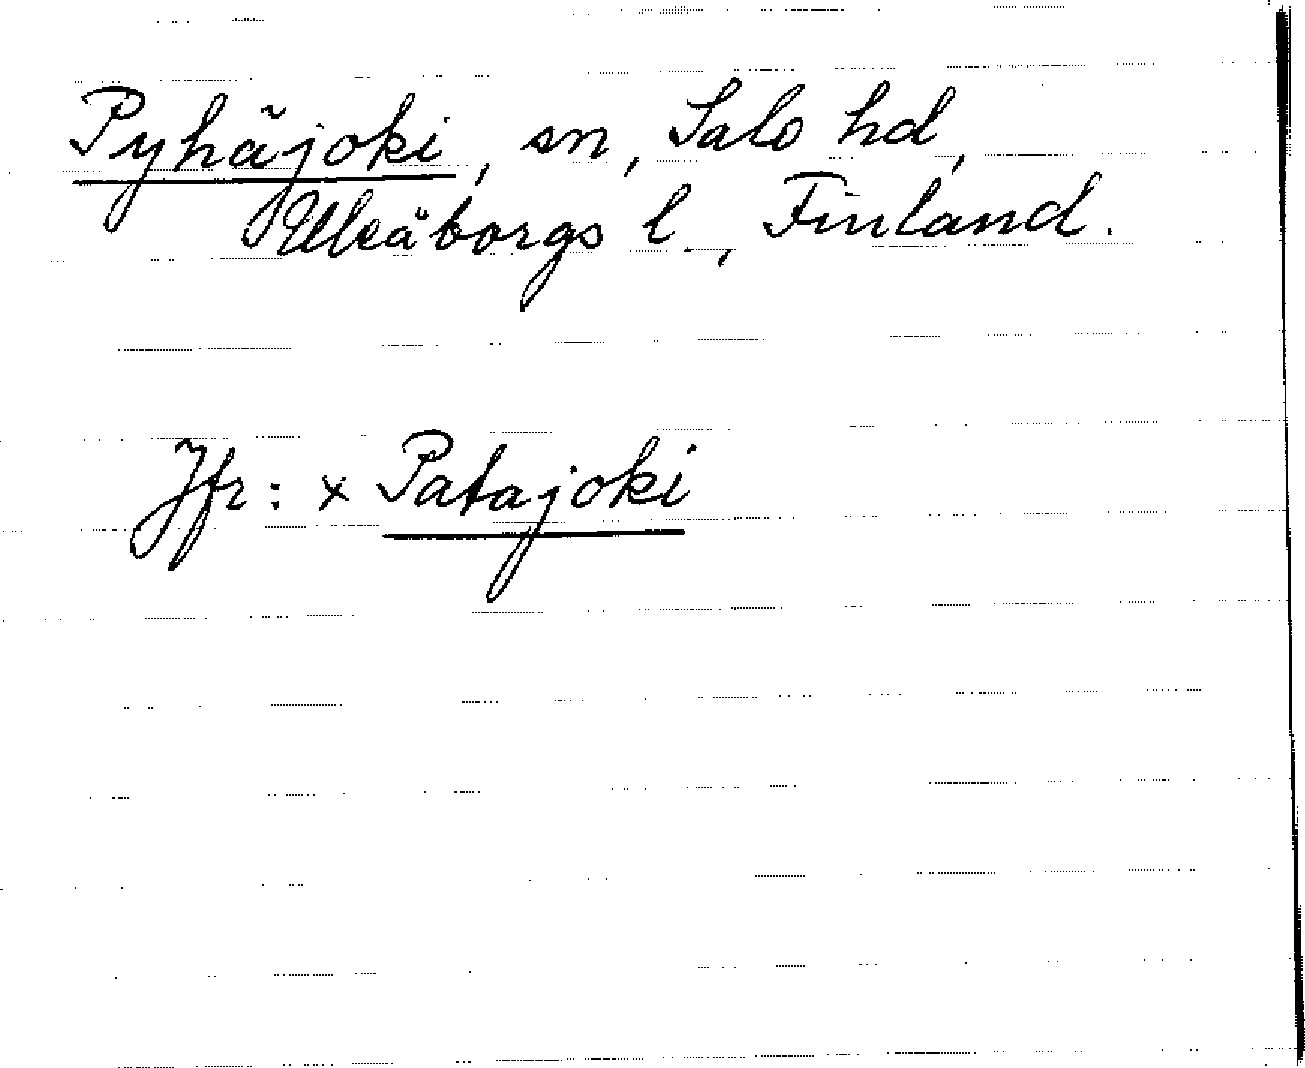 Pyhäjoki, sn, Salo hd,
Uleåborgs l., Finland.
Jfr: x Patajoki